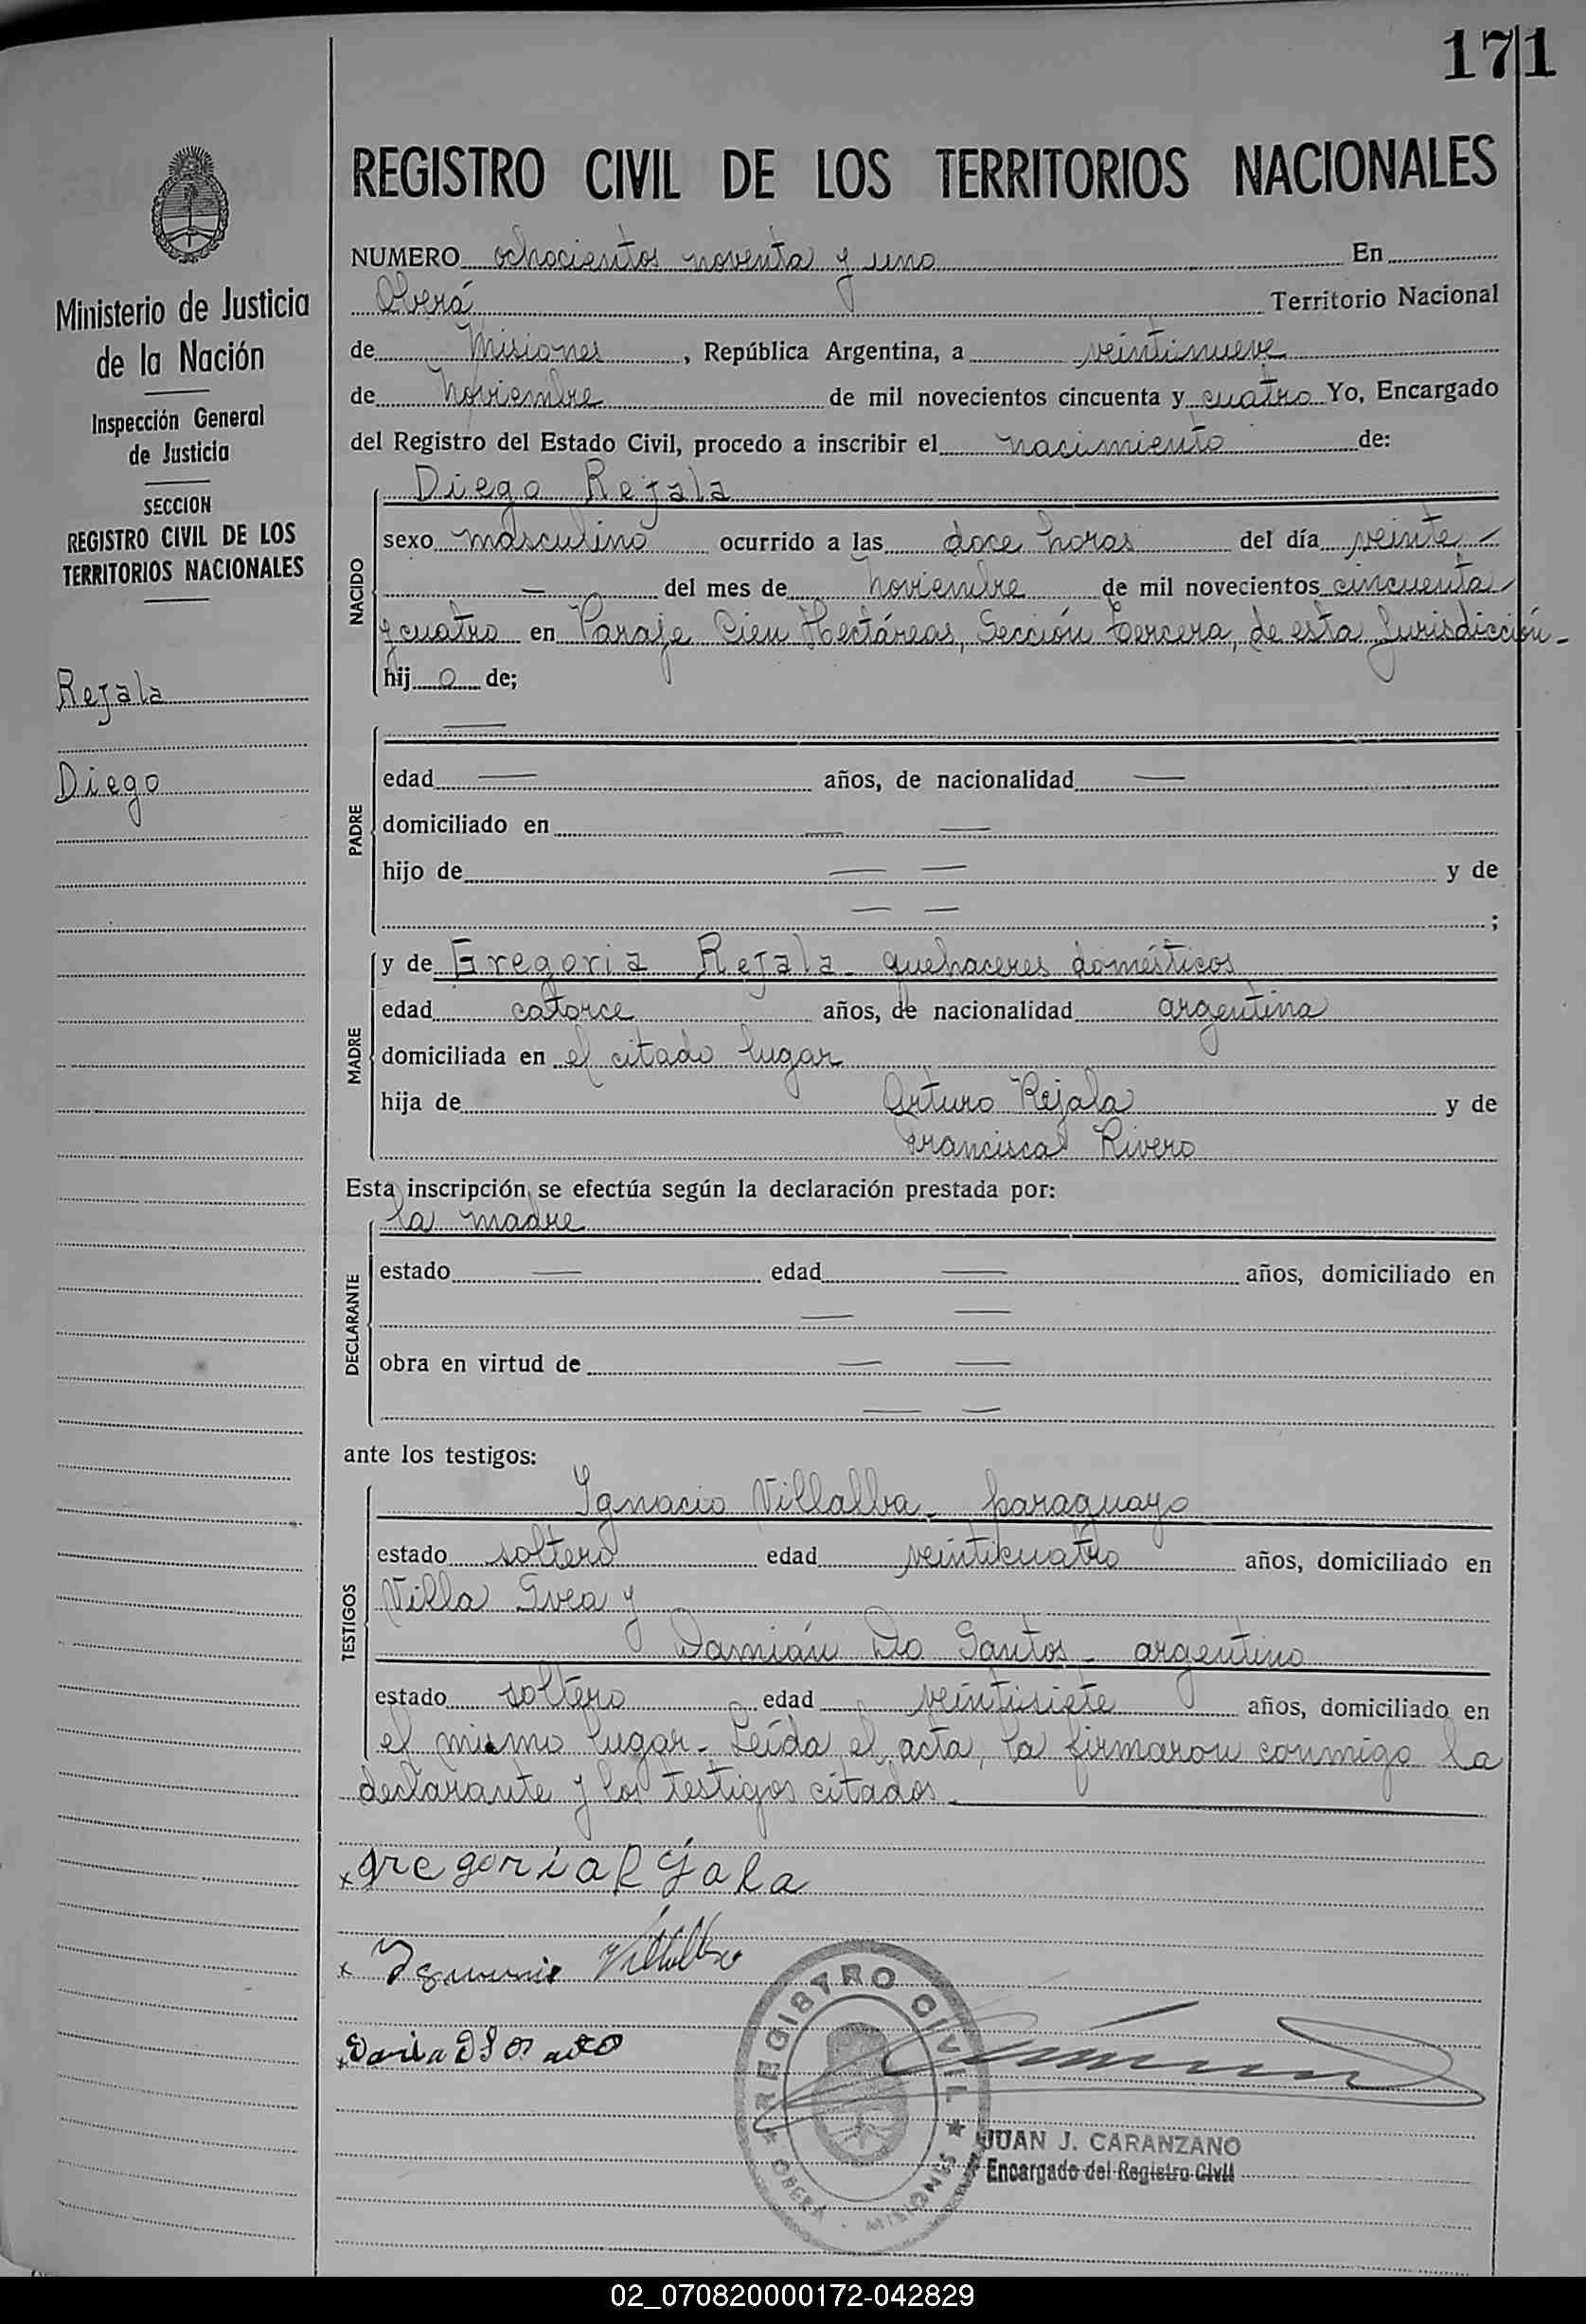 171
REGISTRO CIVIL DE LOS TERRITORIOS NACIONALES
Ministerio de Justicia
de la Nación
Inspección General
de Justicia
SECCION
REGISTRO CIVIL DE LOS
TERRITORIOS NACIONALES
Rejala
Diego
NUMERO ochocientos noventa y uno En
Oberá Territorio Nacional
de Misiones, República Argentina, a veintinueve
de Noviembre de mil novecientos cincuenta y cuatro Yo, Encargado
del Registro del Estado Civil, procedo a inscribir el nacimiento de:
Diego Rejala
NACIDO
sexo masculino ocurrido a las doce horas del día veinte -
— del mes de Noviembre de mil novecientos cincuenta
y cuatro en Paraje Cien Hectáreas, Sección tercera, de esta Jurisdicción -
hijo de;
—
PADRE
edad — años, de nacionalidad —
domiciliado en — —
hijo de — — y de
— — ;
MADRE
y de Gregoria Rejala - quehaceres domésticos
edad catorce años, de nacionalidad argentina
domiciliada en el citado lugar
hija de Arturo Rejala y de
Francisca Rivero
Esta inscripción se efectúa según la declaración prestada por:
la madre
DECLARANTE
estado — edad — años, domiciliado en
— —
obra en virtud de — —
— —
ante los testigos:
TESTIGOS
Ignacio Villalba - paraguayo
estado soltero edad veinticuatro años, domiciliado en
Villa Svea y
Damián Do Santos - argentino
estado soltero edad veintisiete años, domiciliado en
el mismo lugar - Leída el acta, la firmaron conmigo la
declarante y los testigos citados -
x gregoria Rejala
x Ignacio Villalba
x
REGISTRO CIVIL
★ OBERA - MISIONES ★
JUAN J. CARANZANO
Encargado del Registro Civil
02_070820000172-042829